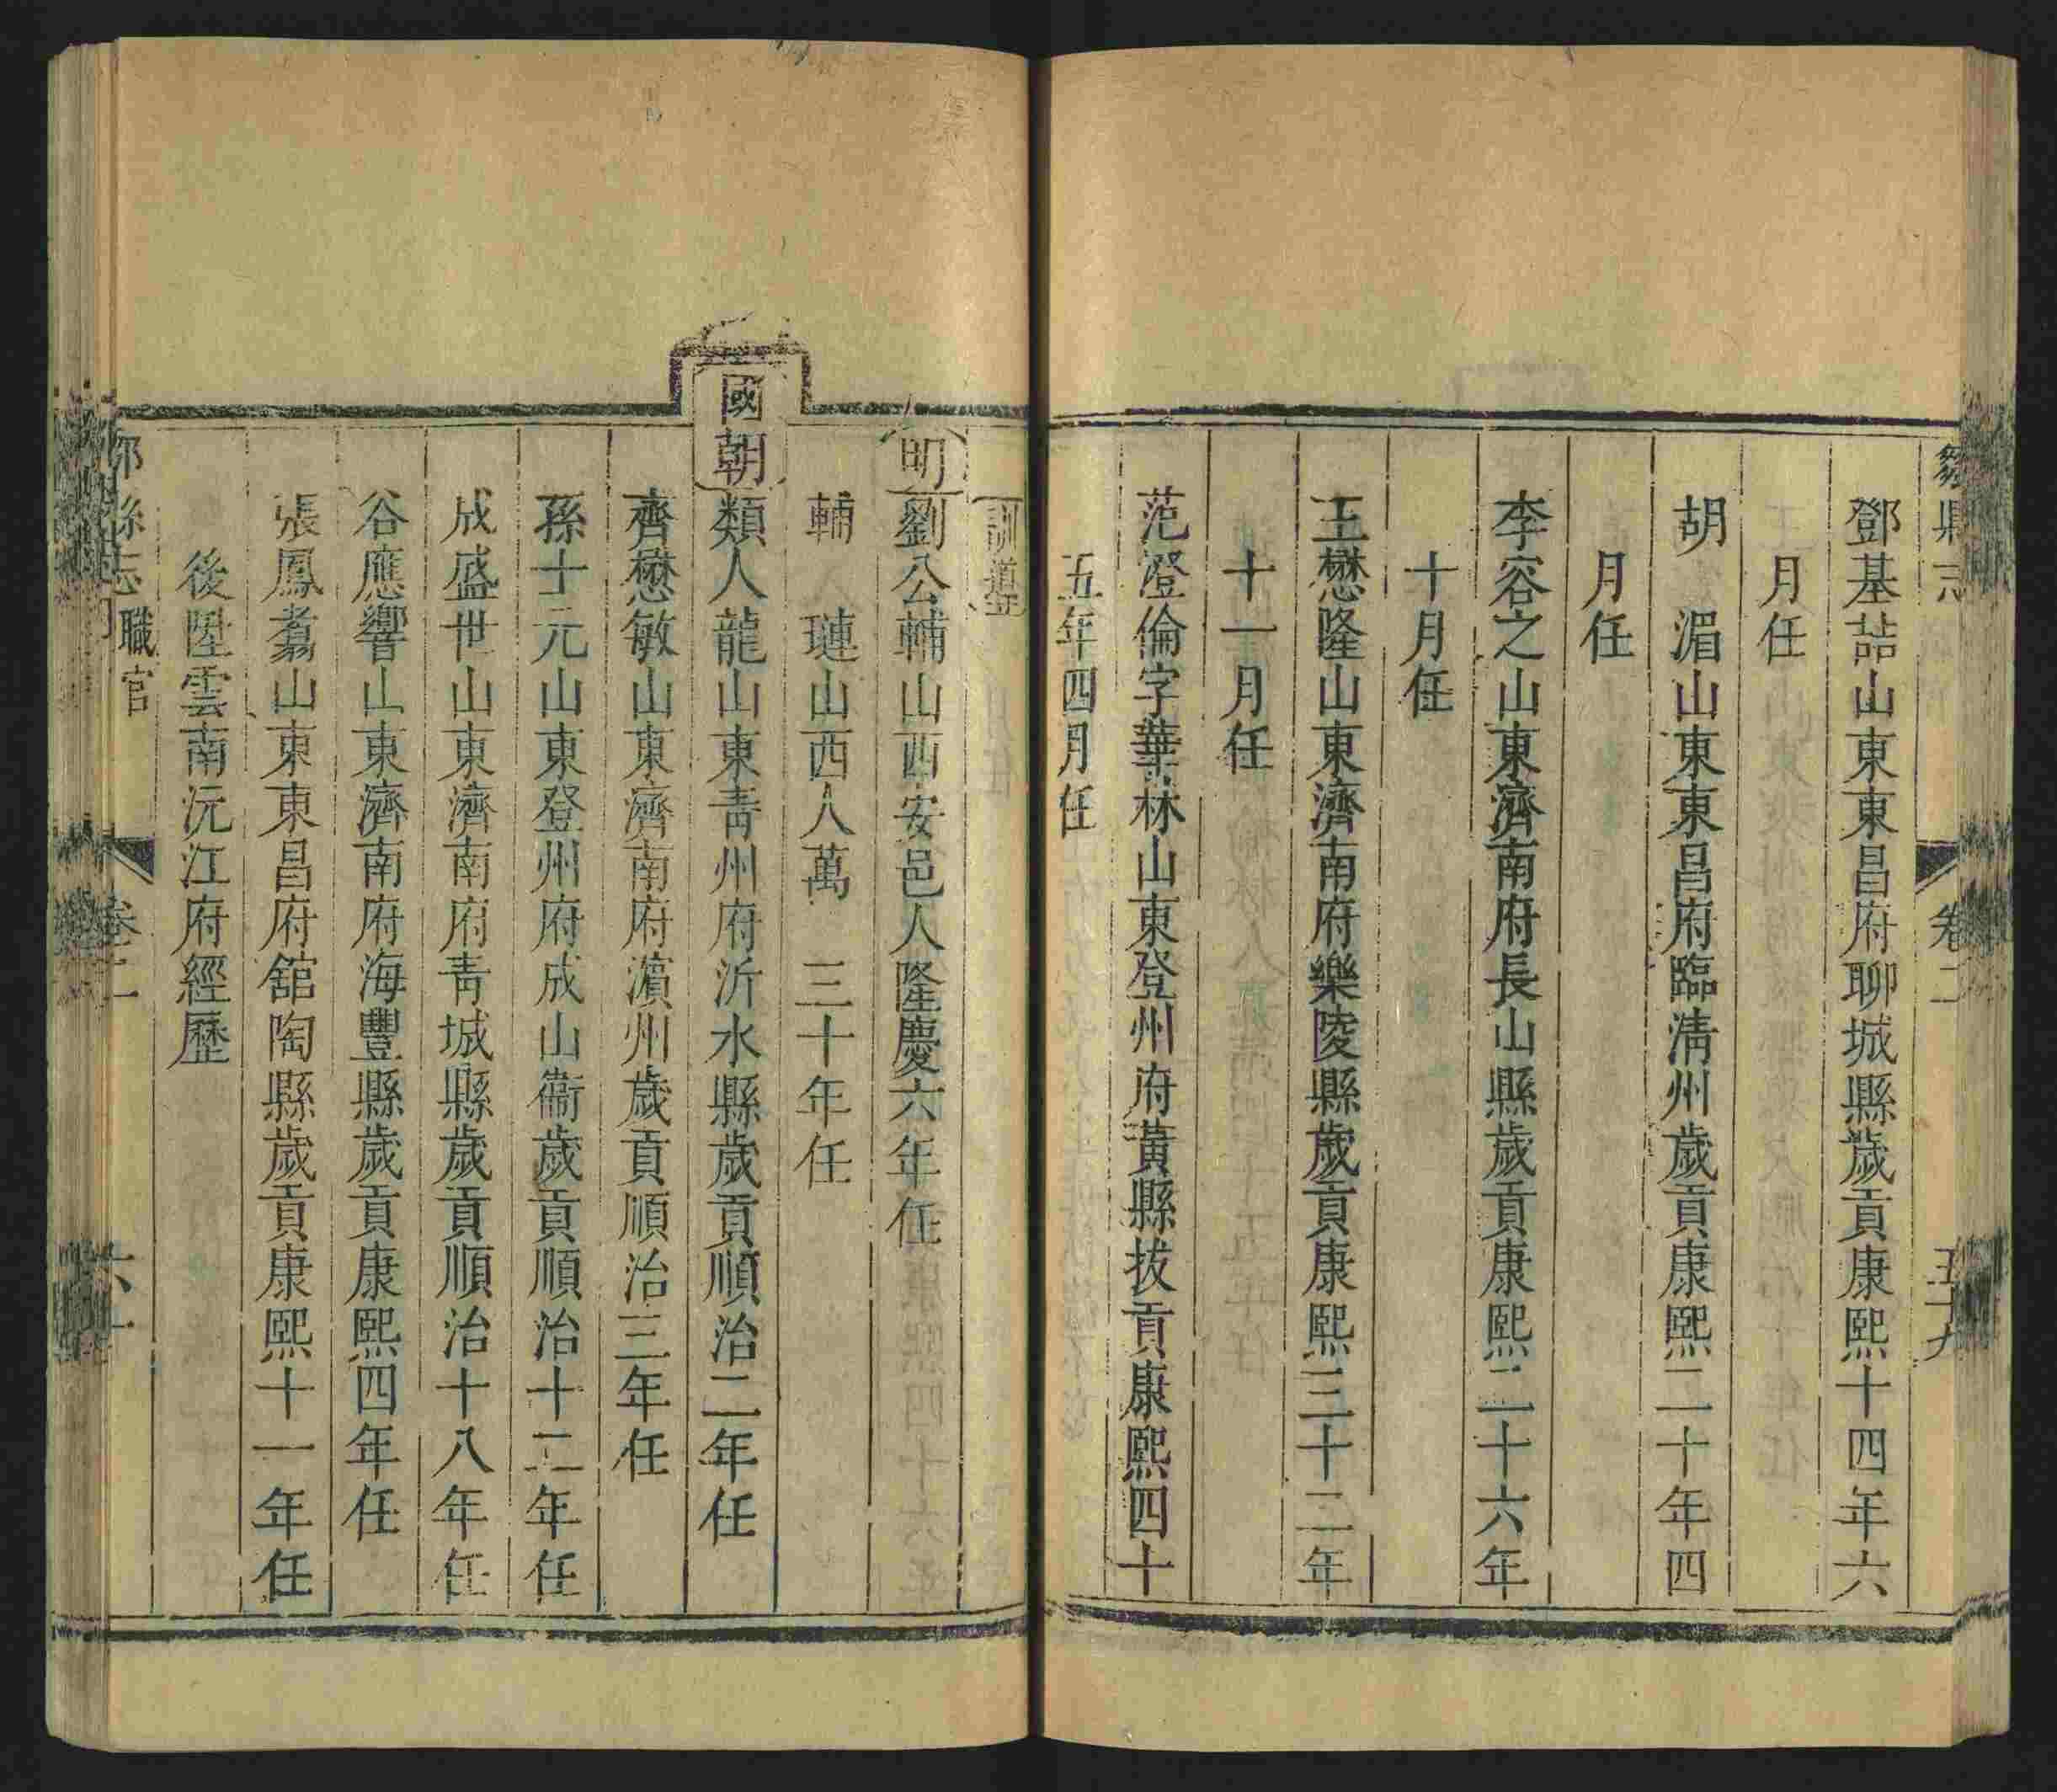 鄒縣志
卷二
五十九
鄧基喆山東東昌府聊城縣歲貢康熙十四年六
月任
胡　湄山東東昌府臨清州歲貢康熙二十年四
月任
李容之山東濟南府長山縣歲貢康熙二十六年
十月任
王懋隆山東濟南府樂陵縣歲貢康熙三十二年
十一月任
范澄倫字華林山東登州府黃縣拔貢康熙四十
五年四月任
訓導
明劉公輔山西安邑人隆慶六年任
輔　璉山西人萬　三十年任
國朝類人龍山東青州府沂水縣歲貢順治二年任
齊懋敏山東濟南府濵州歲貢順治三年任
孫士元山東登州府成山衞歲貢順治十二年任
成盛世山東濟南府青城縣歲貢順治十八年任
谷應響山東濟南府海豐縣歲貢康熙四年任
張鳳翥山東東昌府舘陶縣歲貢康熙十一年任
後陞雲南沅江府經歷
鄒縣志
職官
卷二
六十